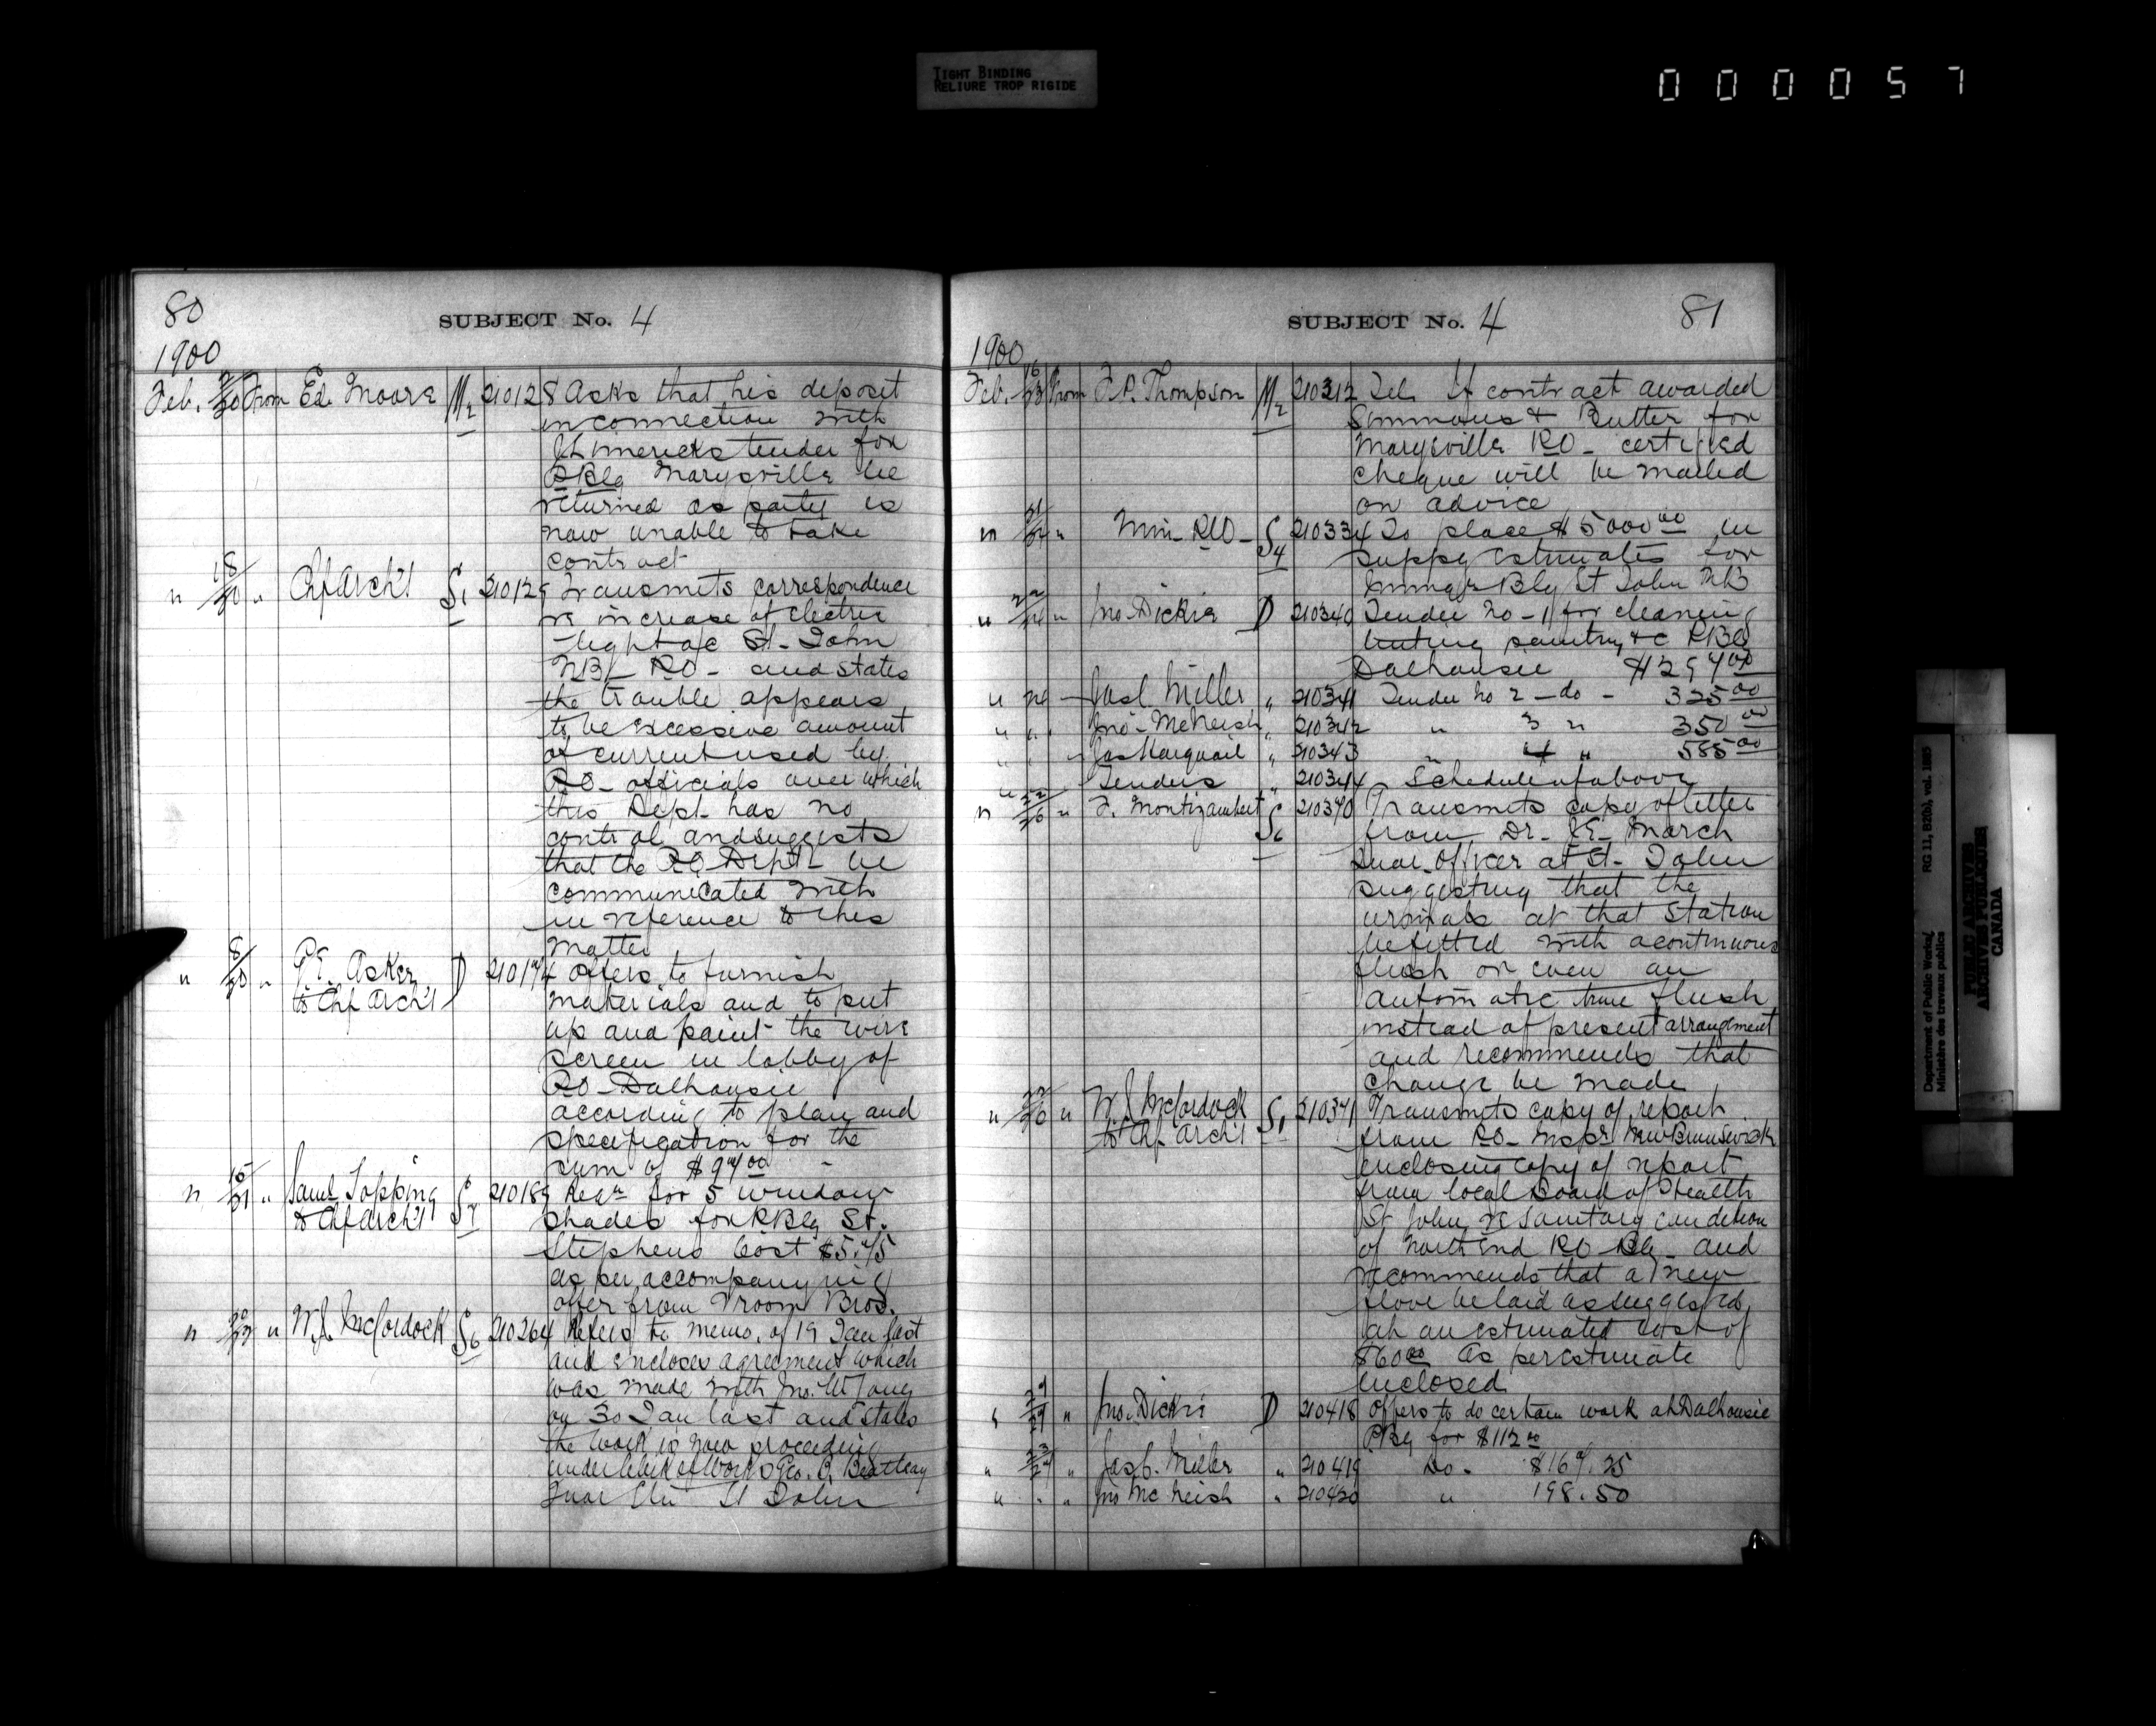 TIGHT BINDING
RELIURE TROP RIGIDE
000057
80
SUBJECT No. 4
1900
Feb. From Ed Moore M2 210128 Asks that his deposit
in connection with
tender for
PBlg Marysville be
returned as party is
now unable to take
contract
" 18/20 " Chf Arch't S1 210129 Transmits correspondence
re increase of electric
light a/c St. John
NB PO - and states
the trouble appears
to be excessive amount
of current used by
PO - officials over which
this Dept. has no
control and suggests
that the PO Deptt be
communicated with
in reference to this
matter
" 8/20 " Asker D 210174 Offers to furnish
to Chf Arch't
materials and to put
up and paint the wire
screen in lobby of
PO - Dalhousie
according to plan and
specification for the
sum of
" 15/21 " Saml Topping S7 210189 Reqn for 5 window
to Chf Arch't
shades for PBlg St.
Stephens Cost
as per accompanying
offer from Vroom Bros.
" " W.J. McCordock S6 210264 Refers to memo. of 19 Jan last
and encloses agreement which
was made with Jno.
on 30 Jan last and states
the work is now proceeding
under Clerk of Works Geo.
St John
SUBJECT No. 4
81
1900
Feb. 16/23 From F.P. Thompson M2 210312 Tel. If contract awarded
Simmons & Butter for
Marysville PO - certified
cheque will be mailed
on advice
" 21/24 " S4 210334 To place $5000 00 in
suppy estimates for
Immigr Blg St John NB
" 22/24 " Jno Dickie D 210340 Tender No - 1 for cleaning
painting &c PBlg
Dalhousie $294 00
" 24 - Jas C Miller " 210341 Tender No 2 - do - 325 00
" " Jno - McNeish " 210342 " 3 " 350 00
" " Jas Harquail " 210343 " 4 " 585 00
" Tenders " 210344 Schedule of above
" 22/26 " F. Montizambert S6 210370 Transmits copy of letter
from Dr - JE - March
Quar. Officer at St - John
suggesting that the
urinals at that station
be fitted with a continuous
flush or even an
automatic time flush
instead of present arrangment
and recommends that
change be made
" 22/26 " W.J. McCordock S1 210371 Transmits copy of report
to Chf. Arch't
from PO - Inspr New Brunswick
enclosing copy of report
from local Board of Health
St John re sanitary condition
of North End PO Blg - and
recommends that a new
floor be laid as suggested,
at an estimated cost of
$60 00 as per estimate
enclosed
" " Jno. Dickie D 210418 Offers to do certain work at Dalhousie
PBlg for $112 00
" " Jas C. Miller " 210419 Do - $167.25
" " " Jno McNeish " 210420 " 198.50
Department of Public Works/
Ministère des travaux publics
RG 11, B2(b), vol. 1885
PUBLIC ARCHIVES
ARCHIVES PUBLIQUES
CANADA